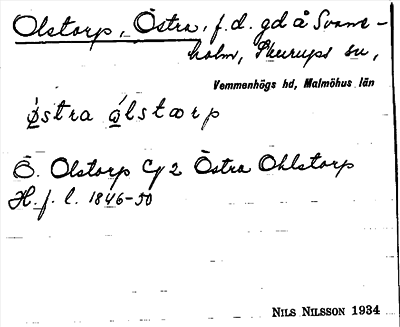 Olstorp, Östra, f.d. gd å Svane-
holm, Skurups sn,
Vemmenhögs hd, Malmöhus län
østra ølstorp
Ö. Olstorp Cf 2 Östra Ohlstorp
H. f. l. 1846-50
NILS NILSSON 1934